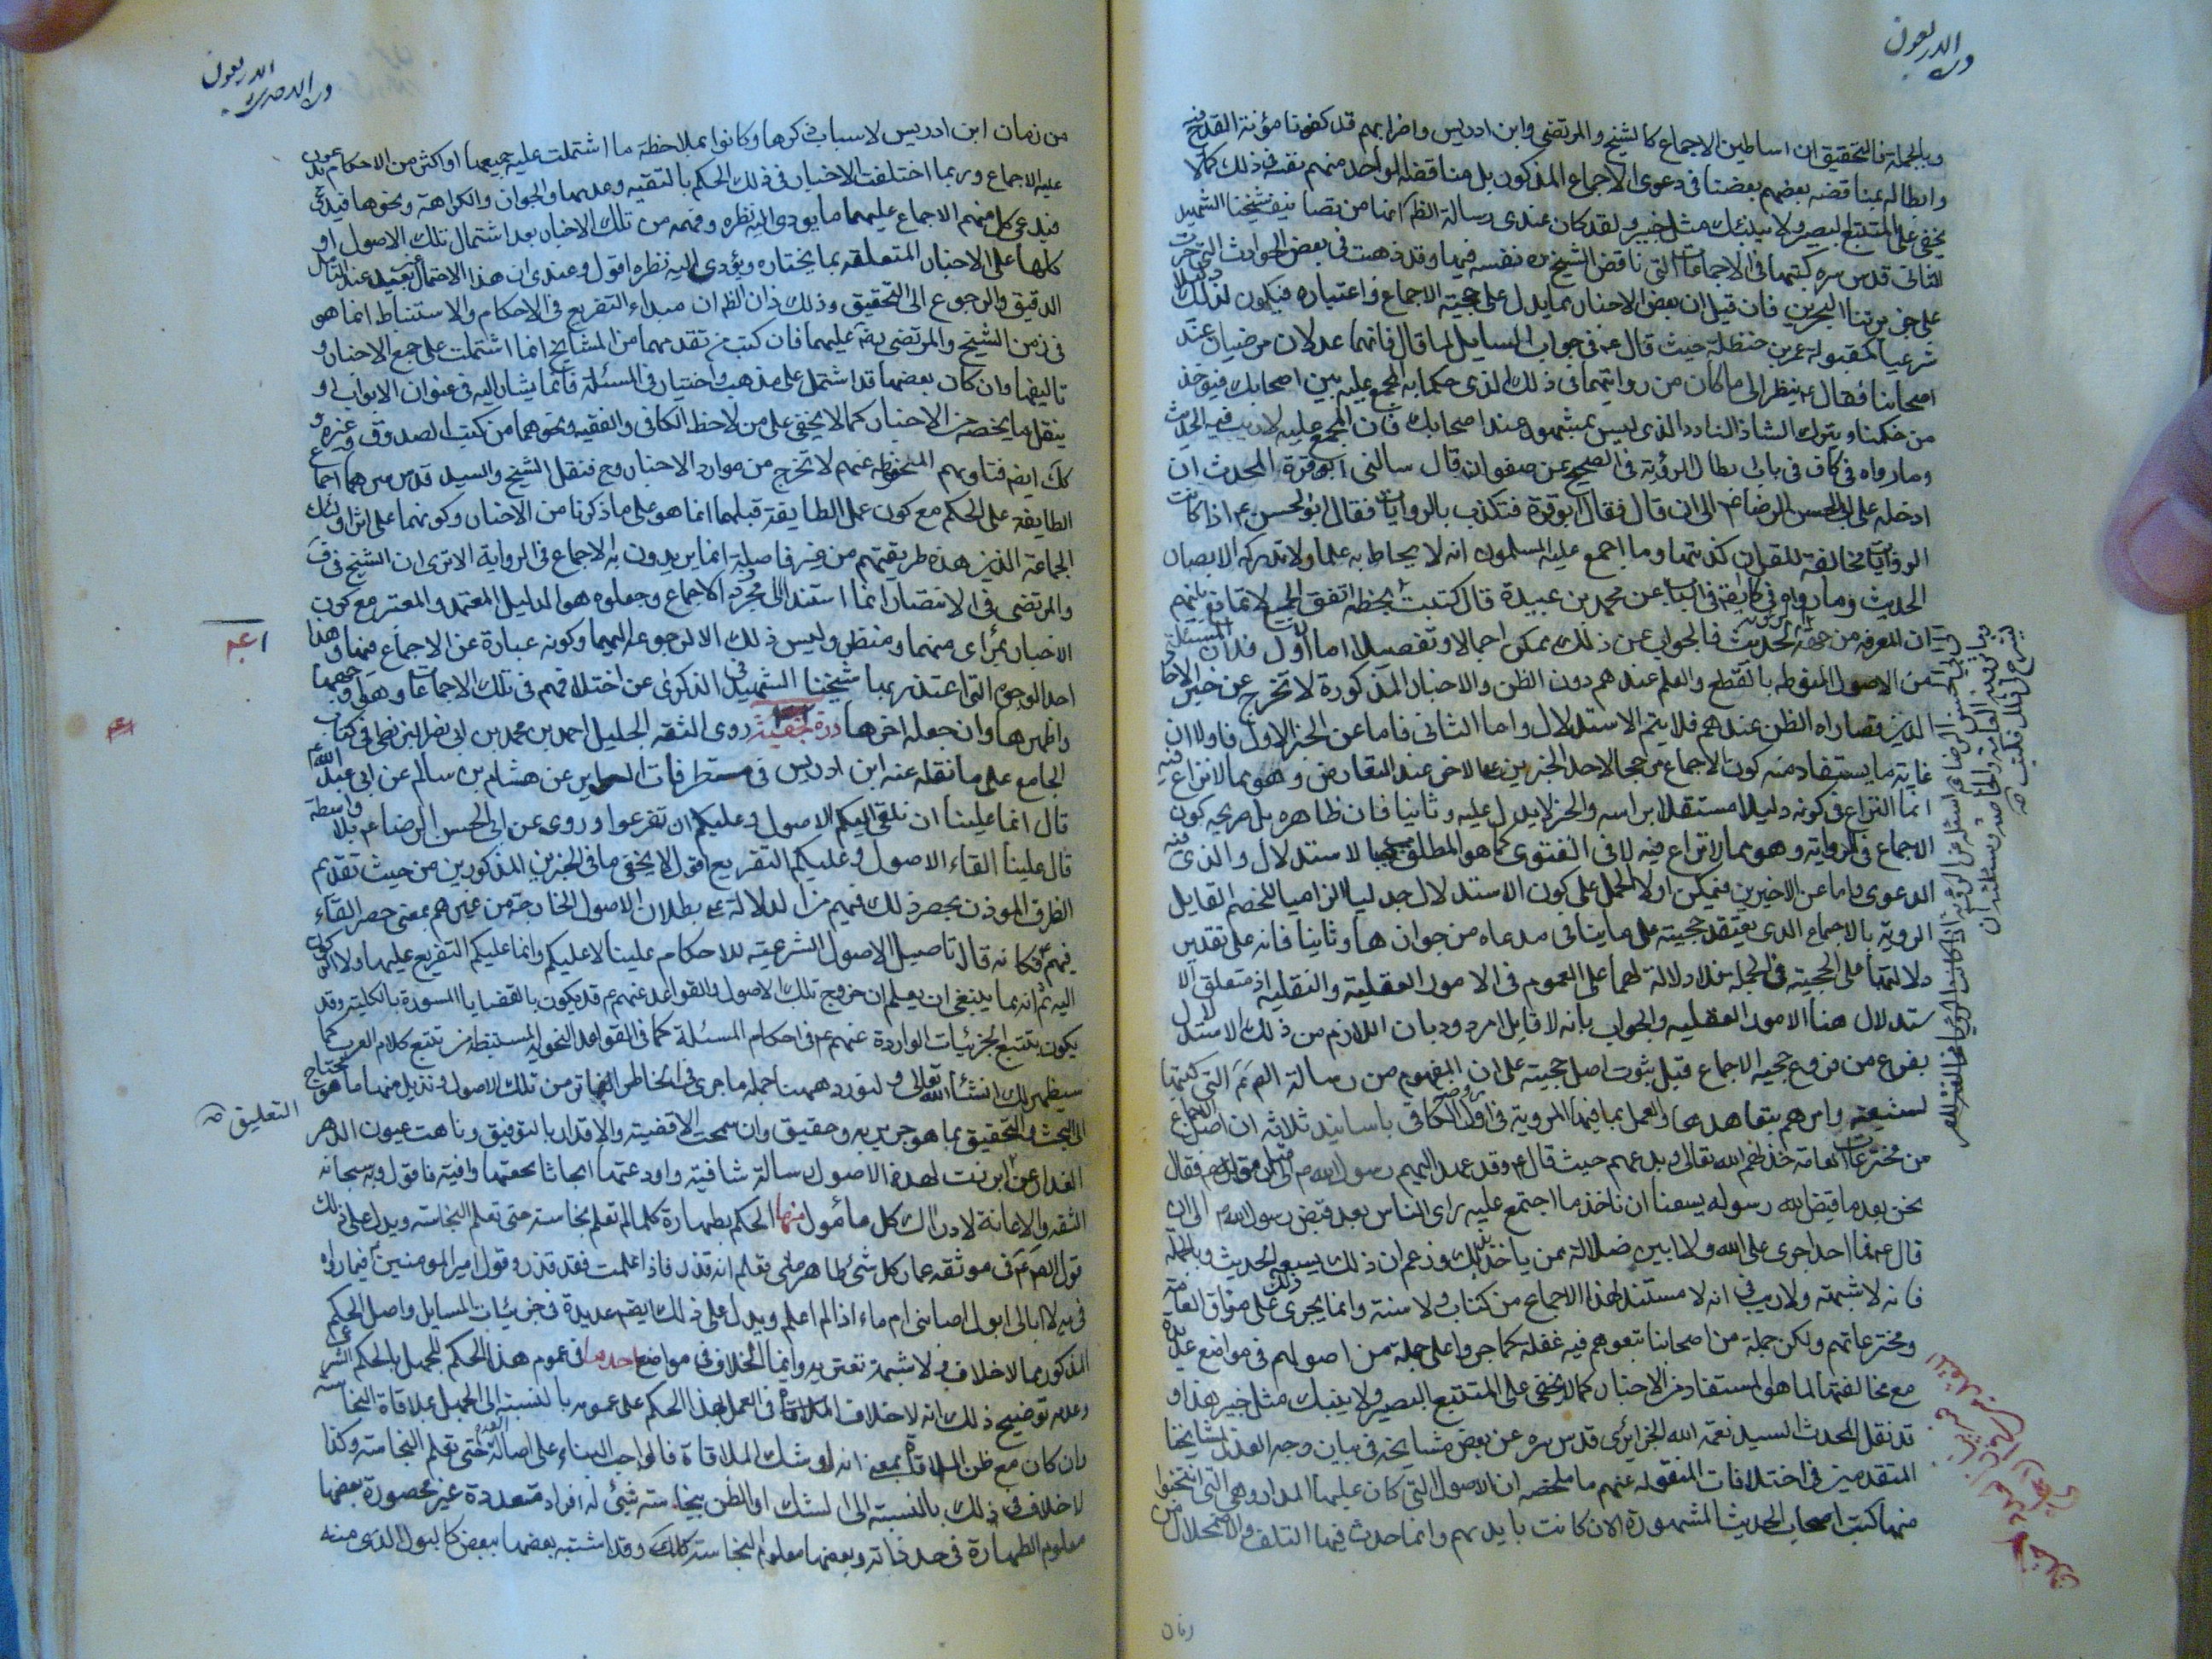 وبالجملة فالتحقيق ان اساطين الاجماع كالشيخ والمرتضى وابن ادريس واضرابهم قد كفونا مؤنة القدح فيه
وابطاله بمناقضة بعضهم بعضا في دعوى الاجماع المذكور بل مناقضة الواحد منهم نفسه في ذلك كما لا
يخفى على المتتبع البصير ولا ينبئك مثل خبير ولقد كان عندى رسالة الظ انها من تصانيف شيخنا الشهيد
الثانى قدس سره كتبها في الاجماعات التى ناقض الشيخ ره نفسه فيها وقد ذهبت في بعض الحوادث التى جرت
على جزيرتنا البحرين فان قيل ان بعض الاخبار مما يدل على حجية الاجماع واعتباره فيكون دليلا
شرعيا كمقبولة عمر بن حنظلة حيث قال عم في جواب السايل لما قال فانهما عدلان مرضيان عند
اصحابنا فقال ع ينظر الى ما كان من روايتهما في ذلك الذى حكما به المجمع عليه بين اصحابك فيؤخذ
من حكمنا ويترك الشاذ النادر الذى ليس بمشهور عند اصحابك فان المجمع عليه لا ريب فيه الحديث
وما رواه في كافى في باب ابطال الرؤية في الصحيح عن صفوان قال سالنى ابو قرة المحدث ان
ادخله على ابى الحسن الرضا ع الى ان قال فقال ابو قرة فتكذب بالروايات فقال ابو الحسن ع اذا كانت
الروايات مخالفة للقران كذبتها وما اجمع عليه المسلمون انه لا يحاط به علما ولا تدركه الابصار
الحديث وما رواه في عن محمد بن عبيدة قال كتبت بخطه اتفق الجميع لا تمانع بينهم
ان المعرفة من جهة الرؤية الحديث فالجواب عن ذلك ممكن اجمالا وتفصيلا اما الاول فلان المسئلة
من الاصول المنوطة بالقطع والعلم عندهم دون الظن والاخبار المذكورة لا تخرج عن خبر الاحاد
الذى قصاراه الظن عندهم فلا يتم الاستدلال واما الثانى فاما عن الخبر الاول فاولا ان
غاية ما يستفاد منه كون الاجماع مرجحا لاحد الخبرين على الاخر عند التعارض وهو مما لا نزاع فيه
انما النزاع في كونه دليلا مستقلا براسه والخبر لا يدل عليه وثانيا فان ظاهره بل صريحه كون
الاجماع في الرواية وهو مما لا نزاع فيه لا في الفتوى كما هو المطلوب بالاستدلال والذى فيه
الدعوى واما عن الاخيرين فيمكن اولا الحمل على كون الاستدلال جدليا الزاميا للخصم القايل
الروية بالاجماع الذى يعتقد حجيته على ما ينافى مدعاه من جوازها وثانيا فانه على تقدير
دلالتهما على الحجية في الجملة فلا دلالة لهما على العموم في الامور العقلية والنقلية اذ متعلق الا
ستدلال هنا الامور العقلية والجواب بانه لا قايل مردود بان اللازم من ذلك الاستدلال
بفرع من فروع حجية الاجماع قبل ثبوت اصل حجيته على ان المفهوم من رسالة الصم عم التى كتبها
لشيعته وامرهم بتعاهدها والعمل بما فيها المروية في اول روضة الكافى باسانيد ثلاثة ان اصل الاجماع
من مخترعات العامة خذلهم الله تعالى وبدعهم حيث قال ع وقد عهد اليهم رسول الله ص قبل موته ص فقالوا
نحن بعد ما قبض الله رسوله يسعنا ان ناخذ ما اجتمع عليه راى الناس بعد قبض رسول الله ص الى ان
قال ع فما احد اجرى على الله ولا ابين ضلالة ممن ياخذ بذلك وزعم ان ذلك يسعه الحديث وبالجملة
فانه لا شبهة ولا ريب في انه لا مستند لهذا الاجماع من كتاب ولا سنة وانما يجرى ذلك على مذاق العامة
ومخترعاتهم ولكن جملة من اصحابنا تبعوهم فيه غفلة كما جروا على جملة من اصولهم في مواضع عديدة
مع مخالفتها لما هو المستفاد من الاخبار كما لا يخفى على المتتبع البصير ولا ينبئك مثل خبير هذا و
قد نقل المحدث السيد نعمة الله الجزائرى قدس سره عن بعض مشايخه في بيان وجه العذر لمشايخنا
المتقدمين في اختلافات المنقولة عنهم ما ملخصه ان الاصول التى كان عليها المدار وهى التى انتخبوا
منها كتب اصحاب الحديث المشهورة الان كانت بايديهم وانما حدث فيها التلف والاضمحلال من
زمان
من زمان ابن ادريس لاسباب ذكرها وكانوا بملاحظة ما اشتملت عليه جميعها او اكثر من الاحكام يدعون
عليه الاجماع وربما اختلفت الاخبار في ذلك الحكم بالتقية وعدمها والجواز والكراهة ونحوها فيدعى
فيدعى كل منهم الاجماع عليهما ما يودى اليه نظره وفهمه من تلك الاخبار بعد اشتمال تلك الاصول او
كلها على الاخبار المتعلقة بما يختاره ويؤدى اليه نظره اقول وعندى ان هذا الاحتمال بعيد عند التأمل
الدقيق والرجوع الى التحقيق وذلك فان الظ ان مبداء التفريع في الاحكام والاستنباط انما هو
في زمن الشيخ والمرتضى رضى عليهما فان كتب من تقدمهما من المشايخ انما اشتملت على جمع الاخبار و
تاليفها وان كان بعضها قد اشتمل على مذهب واختيار في المسئلة فانما يشار اليه في عنوان الابواب و
ينقل ما يخصه من الاخبار كما لا يخفى على من لاحظ الكافى والفقيه ونحوهما من كتب الصدوق وغيره و
كك ايضا فتاويهم المحفوظة عنهم لا تخرج من موارد الاخبار وح فنقل الشيخ والسيد قدس سرهما اجماع
الطايفة على الحكم مع كون عمل الطايفة قبلهما انما هو على ما ذكرنا من الاخبار وكونهما على اثر اولئك
الجماعة الذين هذه طريقتهم من غير فاصلة انما يريدون به الاجماع في الرواية الا ترى ان الشيخ في ف
والمرتضى في الانتصار انما استندا الى مجرد الاجماع وجعلوه هو الدليل المعتمد والمعتبر مع كون
الاخبار بمرأى منهما ومنظر وليس ذلك الا لرجوعه اليها وكونه عبارة عن الاجماع فيها وهذا
احد الوجوه التى اعتذر بها شيخنا الشهيد في الذكرى عن اختلافهم في تلك الاجماعات وهو اوجهها
واظهرها وان جعله اخرها درة نجفية روى الثقة الجليل احمد بن محمد بن ابى نصر البزنطى في كتاب
الجامع على ما نقله عنه ابن ادريس في مستطرفات السراير عن هشام بن سالم عن ابى عبد الله ع
قال انما علينا ان نلقى اليكم الاصول وعليكم ان تفرعوا وروى عن ابى الحسن الرضا ع بلا واسطة
قال علينا القاء الاصول وعليكم التفريع اقول لا يخفى ما في الخبرين المذكورين من حيث تقديم
الظرف الموذن بحصر ذلك فيهم من الدلالة على بطلان الاصول الخارجة من غيرهم بمعنى حصر القاء
فيهم ع فكانه قال تاصيل الاصول الشرعية للاحكام علينا لا عليكم وانما عليكم التفريع عليها
اليه ثم انه مما ينبغى ان يعلم ان خروج تلك الاصول والقواعد عنهم ع قد يكون بالقضايا المسورة بالكلية وقد
يكون بتتبع الجزئيات الواردة عنهم ع في احكام المسئلة كما في القواعد النحوية المستنبطة من تتبع كلام العرب كما
سيظهر لك انشأ الله تعالى ولنورد ههنا جملة ما جرى في الخاطر الفاتر من تلك الاصول ونذيل منها ما هو محتاج
الى البحث والتحقيق بما هو جرير به وحقيق وان سمحت الاقضية والاقدار بالتوفيق ونامت عيون الدهر
الغدار عن ابرزت لهذه الاصول رسالة شافية واودعتها ابحاثا بحقها وافية فاقول وبه سبحانه
الثقة والاعانة لادراك كل مأمول منها الحكم بطهارة كلما لم تعلم نجاسته حتى تعلم النجاسة ويدل على ذلك
قول الصم عم في موثقة عمار كل شئ طاهر حتى تعلم انه قذر فاذا علمت فقد قذر وقول امير المومنين ع فيما رواه
في يه لا ابالى ابول اصابنى ام ماء اذا لم اعلم ويدل على ذلك ايضا عديدة في جزئيات المسايل واصل الحكم
المذكور مما لا خلاف ولا شبهة تعتريه وانما الخلاف في مواضع احدها في عموم هذا الحكم للجهل بالحكم الشرعى
وعدمه توضيح ذلك انه لا خلاف في العمل بهذا الحكم على عمومه بالنسبة الى الجهل بملاقاة النجاسة
وان كان مع ظن الملاقاة بمعنى انه لو شك الملاقاة فالواجب البناء على اصالة الطهارة حتى تعلم النجاسة وكذا
لا خلاف في ذلك بالنسبة الى الشك او الظن بنجاسة شئ له افراد متعددة غير محصورة بعضها
معلوم الطهارة في حد ذاته وبعضها معلوم النجاسة كك وقد اشتبه بعضها ببعض كالبول الذى منه